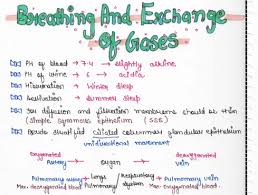 Breathing And Exchange
Of Gases
PH of blood → 7.4 → slightly alkline.
PH of urine → 6 → acidic
Hibernation → Winter sleep
Aestivation → Summer sleep
For diffusion and filtration membranes should be thin
(Simple squamous epithelium (SSE)
Pseudo stratified ciliated columnar glandular epithelium
unidirectional movement
Oxygenated deoxygenated
Artery → organ → vein
Pulmonary artery Lungs Respiratory system Pulmonary vein
Max. deoxygenated blood Pulmonary Max. Oxygenated blood